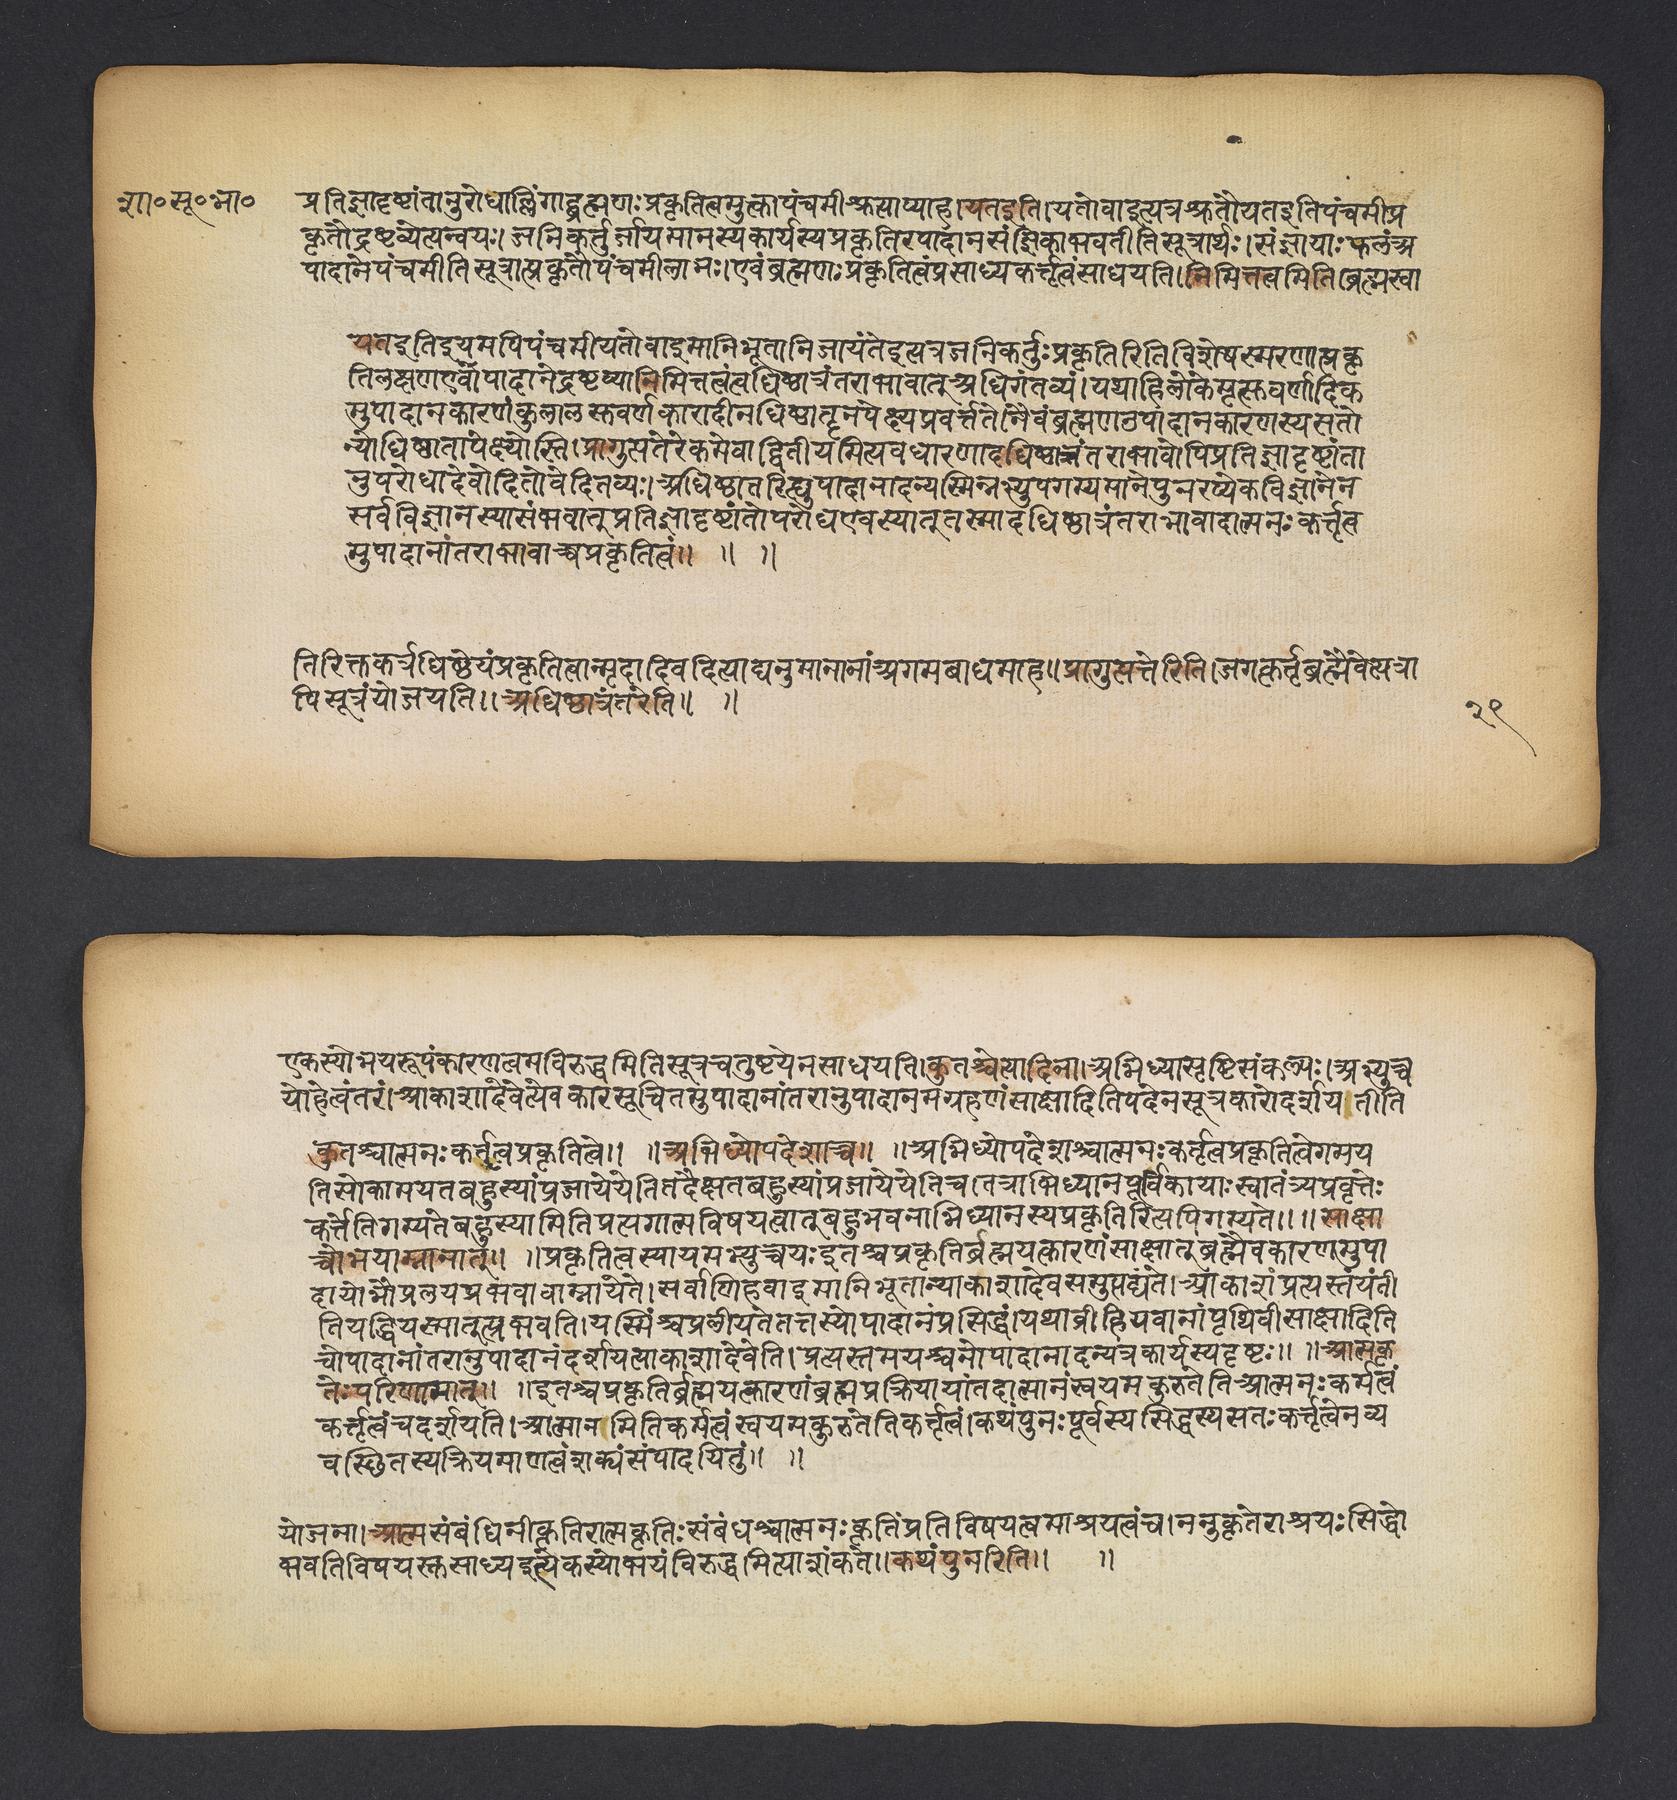 शा॰सू॰भा॰
प्रतिज्ञादृष्टांतानुरोधाल्लिंगाद्ब्रह्मणः प्रकृतित्वमुक्त्वापंचमीश्रुत्याप्याह।यतइति।यतोवाइत्यत्रश्रुतौयतइतिपंचमीप्र
कृतौद्रष्टव्येत्यन्वयः।जनिकर्तुर्जायमानस्यकार्यस्यप्रकृतिरपादानसंज्ञिकाभवतीतिसूत्रार्थः।संज्ञायाः फलंअ
पादानेपंचमीतिसूत्रात्प्रकृतौपंचमीलाभः।एवंब्रह्मणः प्रकृतित्वंप्रसाध्यकर्तृत्वंसाधयति।निमित्तत्वमिति।ब्रह्मस्वा
यतइतिइयमपिपंचमीयतोवाइमानिभूतानिजायंतेइत्यत्रजनिकर्तुः प्रकृतिरितिविशेषस्मरणात्प्रकृ
तिलक्षणएवोपादानेद्रष्टव्यानिमित्तत्वंत्वधिष्ठात्रंतराभावात्अधिगंतव्यं।यथाहिलोकेमृत्सुवर्णादिक
मुपादानकारणंकुलालसुवर्णकारादीनधिष्ठातॄनपेक्ष्यप्रवर्त्ततेनैवंब्रह्मणउपादानकारणस्यसतो
न्योधिष्ठातापेक्ष्योस्ति।प्रागुत्पत्तेरेकमेवाद्वितीयमित्यवधारणादधिष्ठात्रंतराभावोपिप्रतिज्ञादृष्टांता
नुपरोधादेवोदितोवेदितव्यः।अधिष्ठातरिह्युपादानादन्यस्मिन्नभ्युपगम्यमानेपुनरप्येकविज्ञानेन
सर्वविज्ञानस्यासंभवात्प्रतिज्ञादृष्टांतोपरोधएवस्यात्तस्मादधिष्ठात्रंतराभावादात्मनः कर्त्तृत्व
मुपादानांतराभावाच्चप्रकृतित्वं॥ ॥ ॥
तिरिक्तकर्त्रधिष्ठेयंप्रकृतित्वान्मृदादिवदित्याद्यनुमानानांअगमबाधमाह॥प्रागुत्पत्तेरिति।जगत्कर्तृब्रह्मैवेत्यत्रा
पिसूत्रंयोजयति॥अधिष्ठात्रंतरेति॥ ॥
२९
एकस्योभयरूपंकारणत्वमविरुद्धमितिसूत्रचतुष्टयेनसाधयति।कुतश्चेत्यादिना।अभिध्यासृष्टिसंकल्पः।अभ्युच्च
योहेत्वंतरं।आकाशादेवेत्येवकारसूचितमुपादानांतरानुपादानमग्रहणंसाक्षादितिपदेनसूत्रकारोदर्शयतीति
कुतश्चात्मनः कर्तृत्वप्रकृतित्वे॥ ॥अभिध्योपदेशाच्च॥ ॥अभिध्योपदेशश्चात्मनः कर्तृत्वप्रकृतित्वेगमय
तिसोकामयतबहुस्यांप्रजायेयेतितदैक्षतबहुस्यांप्रजायेयेतिचतत्राभिध्यानपूर्विकायाः स्वातंत्र्यप्रवृत्तेः
कर्त्तेतिगम्यतेबहुस्यामितिप्रत्यगात्मविषयत्वात्बहुभवनाभिध्यानस्यप्रकृतिरित्यपिगम्यते॥॥साक्षा
च्चोभयाम्नानात्॥ ॥प्रकृतित्वस्यायमभ्युच्चयः इतश्चप्रकृतिर्ब्रह्मयत्कारणंसाक्षात्ब्रह्मैवकारणमुपा
दायोभौप्रलयप्रभवावाम्नायेते।सर्वाणिहवाइमानिभूतान्याकाशादेवसमुत्पद्यंते।आकाशंप्रत्यस्तंयंती
तियद्धियस्मात्प्रभवति।यस्मिंश्चप्रलीयतेतत्तस्योपादानंप्रसिद्धं।यथाव्रीहियवानांपृथिवीसाक्षादिति
चोपादानांतरानुपादानंदर्शयत्याकाशादेवेति।प्रत्यस्तमयश्चनोपादानादन्यत्रकार्यस्यदृष्टः॥ ॥आत्मकृ
तेः परिणामात्॥ ॥इतश्चप्रकृतिर्ब्रह्मयत्कारणंब्रह्मप्रक्रियायांतदात्मानंस्वयमकुरुतेतिआत्मनः कर्मत्वं
कर्तृत्वंचदर्शयति।आत्मानमितिकर्मत्वंस्वयमकुरुतेतिकर्त्तृत्वं।कथंपुनः पूर्वस्यसिद्धस्यसतः कर्तृत्वेनव्य
वस्थितस्यक्रियमाणत्वंशक्यंसंपादयितुं॥ ॥
योजना।आत्मसंबंधिनीकृतिरात्मकृतिः संबंधश्चात्मनः कृतिंप्रतिविषयत्वमाश्रयत्वंच।ननुकृतेराश्रयः सिद्धो
भवतिविषयस्तुसाध्यइत्येकस्योभयंविरुद्धमित्याशंकते॥कथंपुनरिति॥ ॥